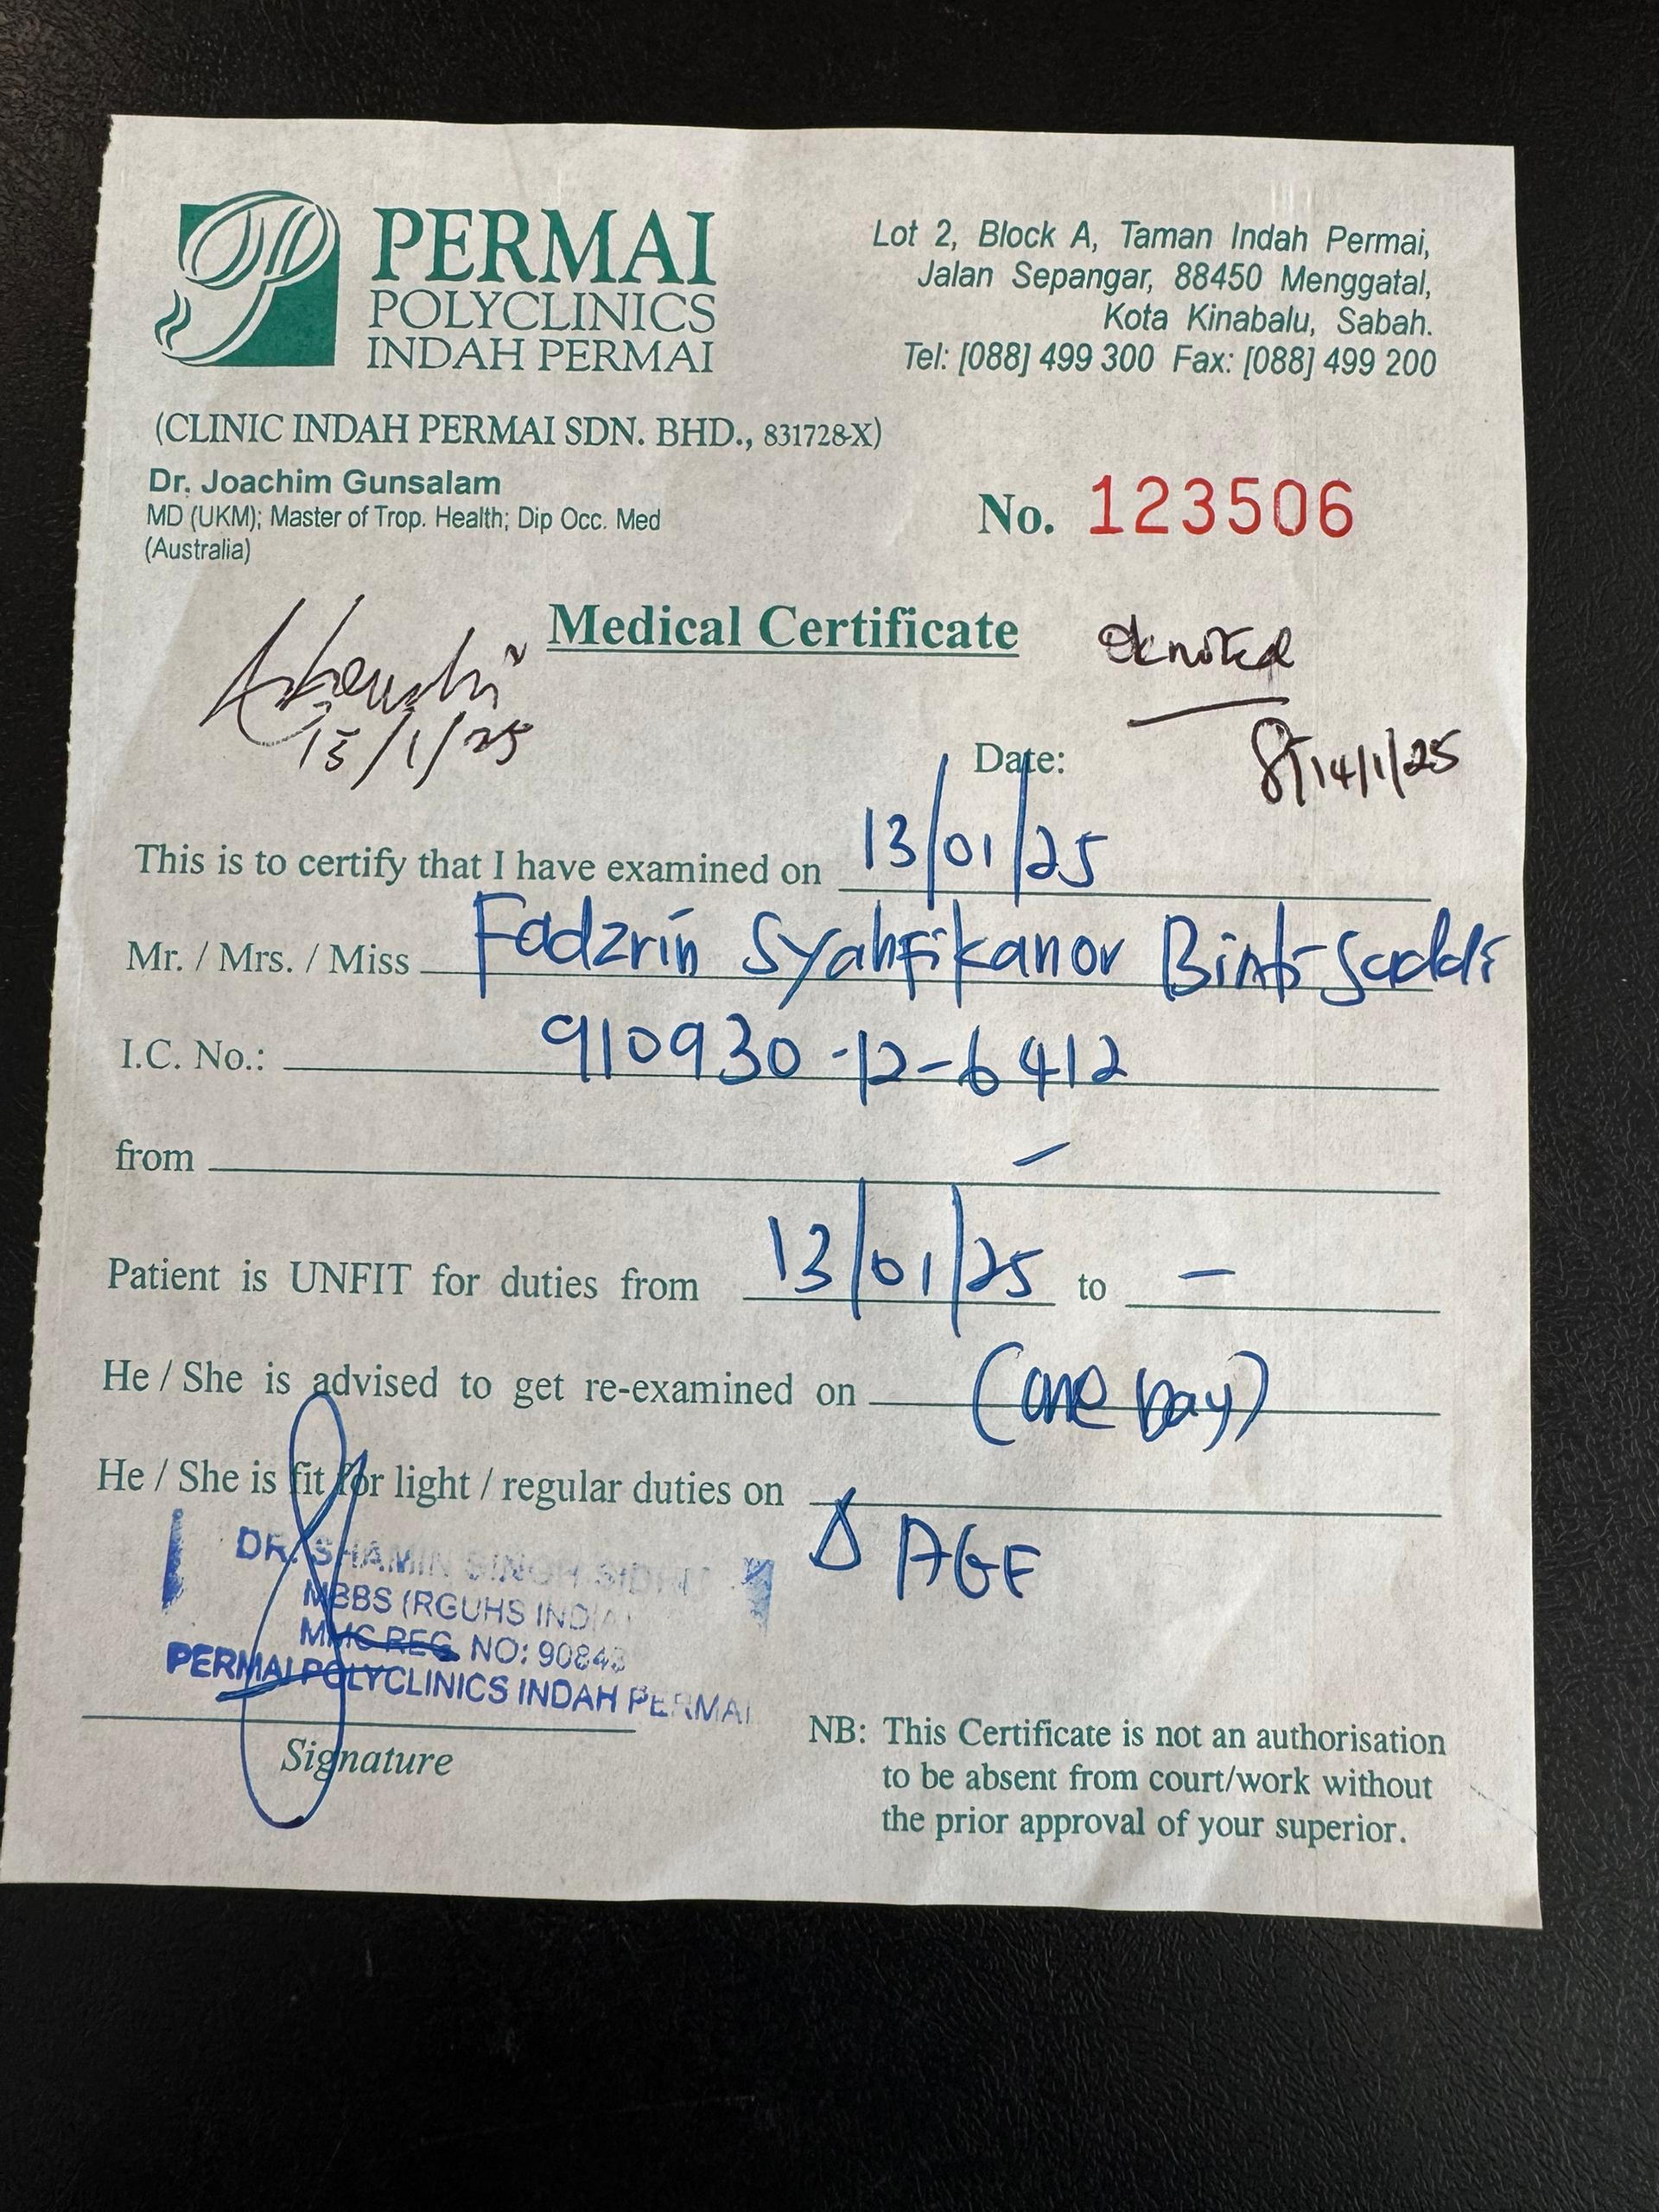 PERMAI
POLYCLINICS
INDAH PERMAI
Lot 2, Block A, Taman Indah Permai,
Jalan Sepangar, 88450 Menggatal,
Kota Kinabalu, Sabah.
Tel: [088] 499 300 Fax: [088] 499 200
(CLINIC INDAH PERMAI SDN. BHD., 831728-X)
Dr. Joachim Gunsalam
MD (UKM); Master of Trop. Health; Dip Occ. Med
(Australia)
No. 123506
Medical Certificate
noted
15/1/25
Date:
14/1/25
This is to certify that I have examined on 13/01/25
Mr. / Mrs. / Miss Fadzrin Syahfikanor Binti
I.C. No.: 910930-12-6412
from -
Patient is UNFIT for duties from 13/01/25 to -
He / She is advised to get re-examined on (one Day)
He / She is fit for light / regular duties on
Δ AGE
DR. SHAMIN SINGH SIDHU
MBBS (RGUHS INDIA)
MMC REG NO: 90843
PERMAI POLYCLINICS INDAH PERMAI
Signature
NB: This Certificate is not an authorisation
to be absent from court/work without
the prior approval of your superior.